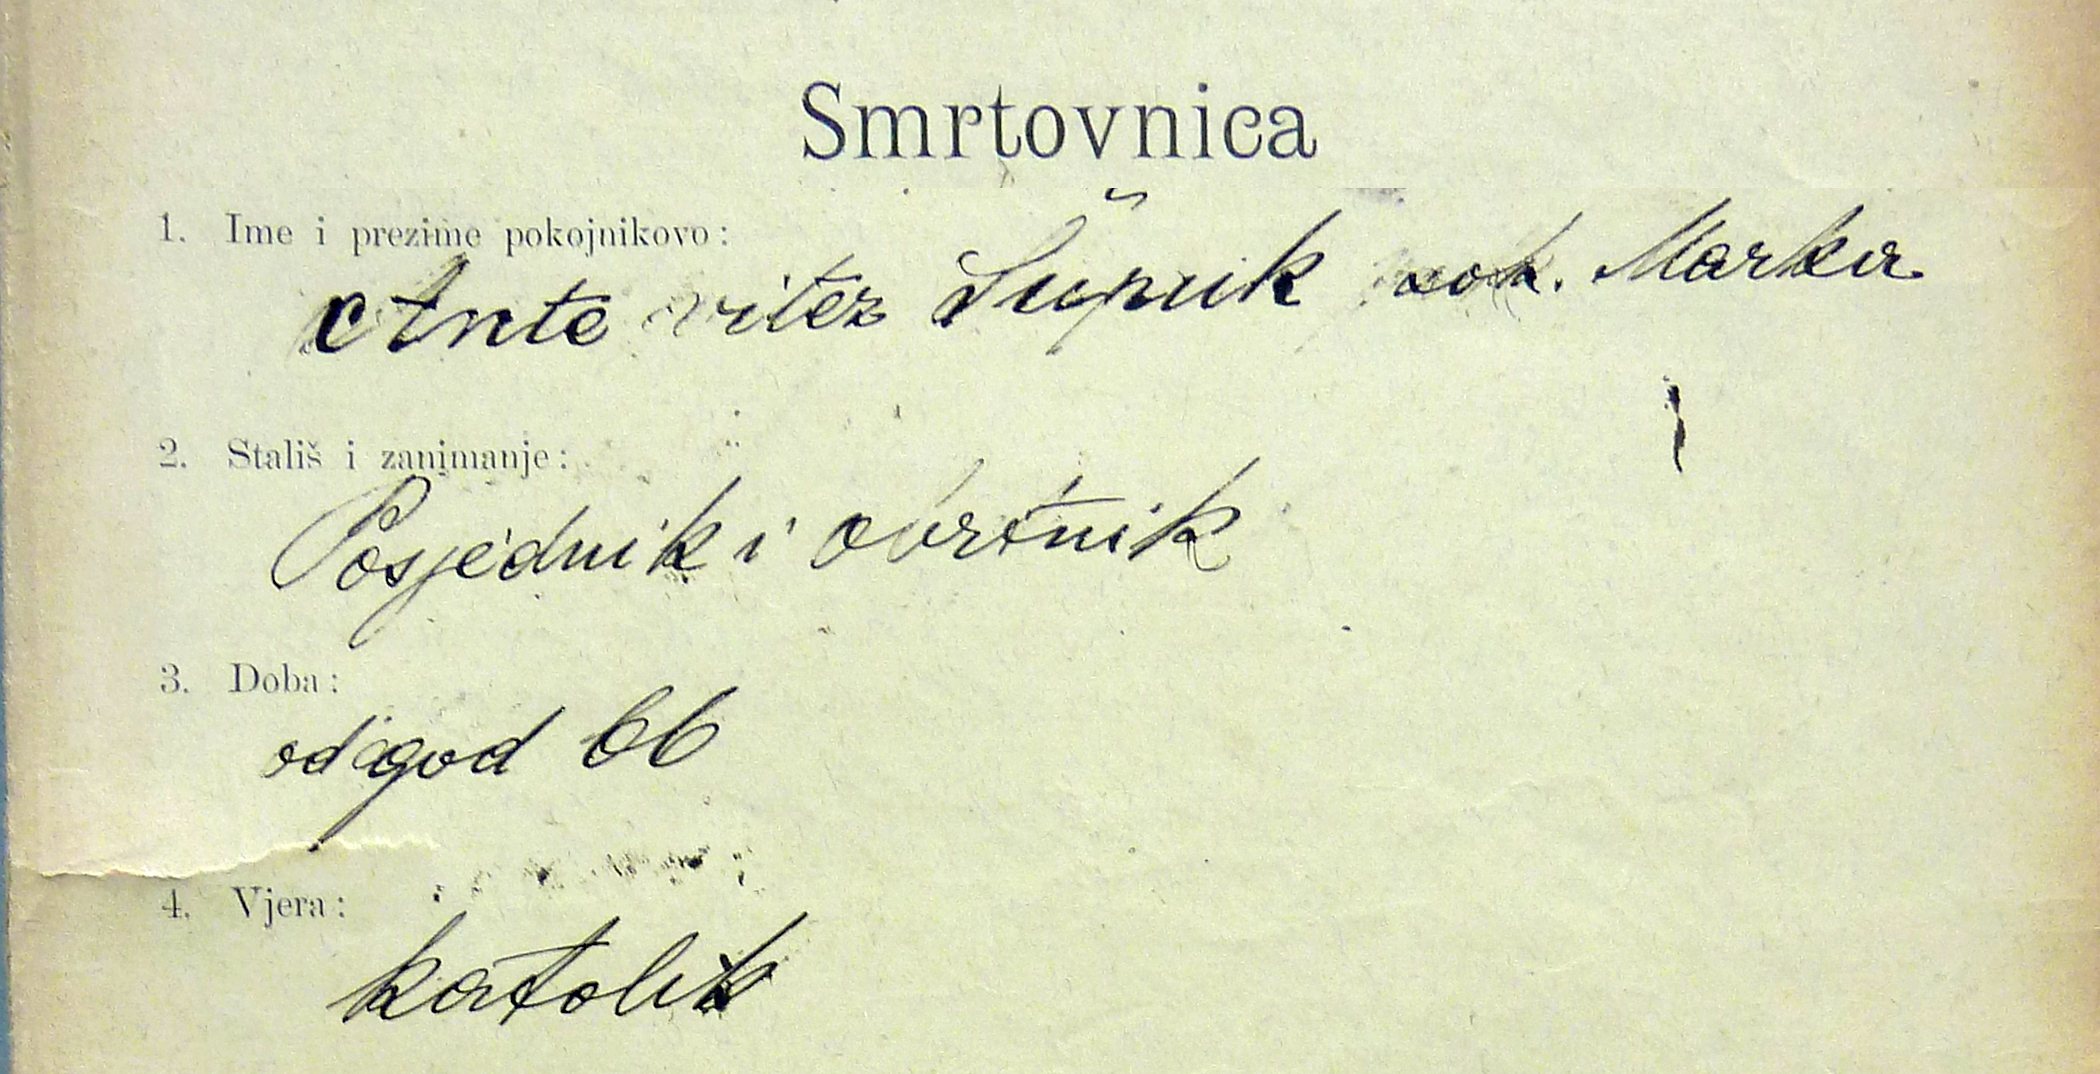 Smrtovnica
1. Ime i prezime pokojnikovo:
Ante vitez Šupuk pok. Marka
2. Stališ i zanimanje:
Posjednik i obrtnik
3. Doba:
od god 66
4. Vjera:
katolik